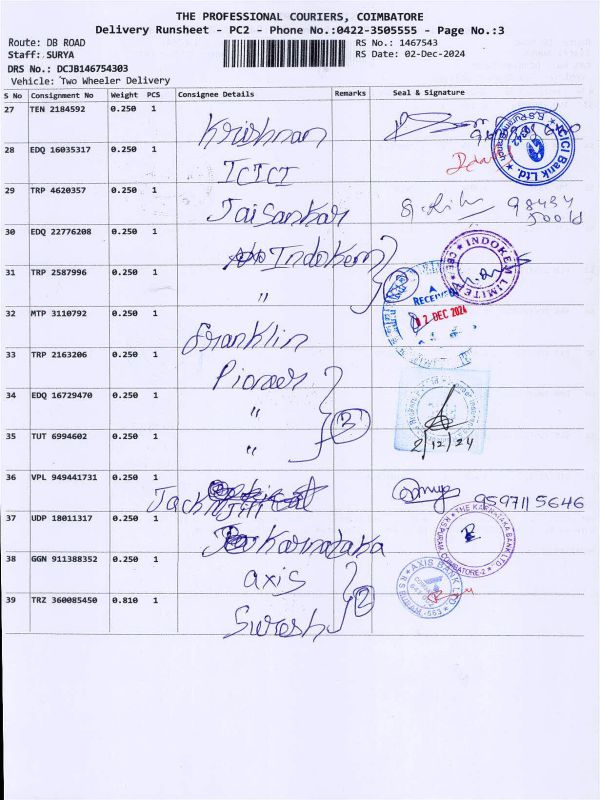 THE PROFESSIONAL COURIERS, COIMBATORE
Delivery Runsheet - PC2 - Phone No.:0422-3505555 - Page No.:3
Route: DB ROAD
RS No.: 1467543
Staff: SURYA
RS Date: 02-Dec-2024
DRS No.: DCJB146754303
Vehicle: Two Wheeler Delivery
S No Consignment No Weight PCS Consignee Details Remarks Seal & Signature
27 TEN 2184592 0.250 1 Krishnan
28 EDQ 16035317 0.250 1 ICICI
ICICI Bank Ltd.
29 TRP 4620357 0.250 1 Jaisankar
30 EDQ 22776208 0.250 1 Indokem
INDOKEM LIMITED
CBE
31 TRP 2587996 0.250 1 "
RECEIVED
02 DEC 2024
32 MTP 3110792 0.250 1 Franklin
33 TRP 2163206 0.250 1 Pioneer
34 EDQ 16729470 0.250 1 "
35 TUT 6994602 0.250 1 " 3
2/12/24
36 VPL 949441731 0.250 1 9597115646
37 UDP 18011317 0.250 1 Karnataka
THE KARNATAKA BANK LTD
R.S PURAM, COIMBATORE-2
38 GGN 911388352 0.250 1 axis
AXIS BANK LTD
39 TRZ 360085450 0.810 1 Suresh 2